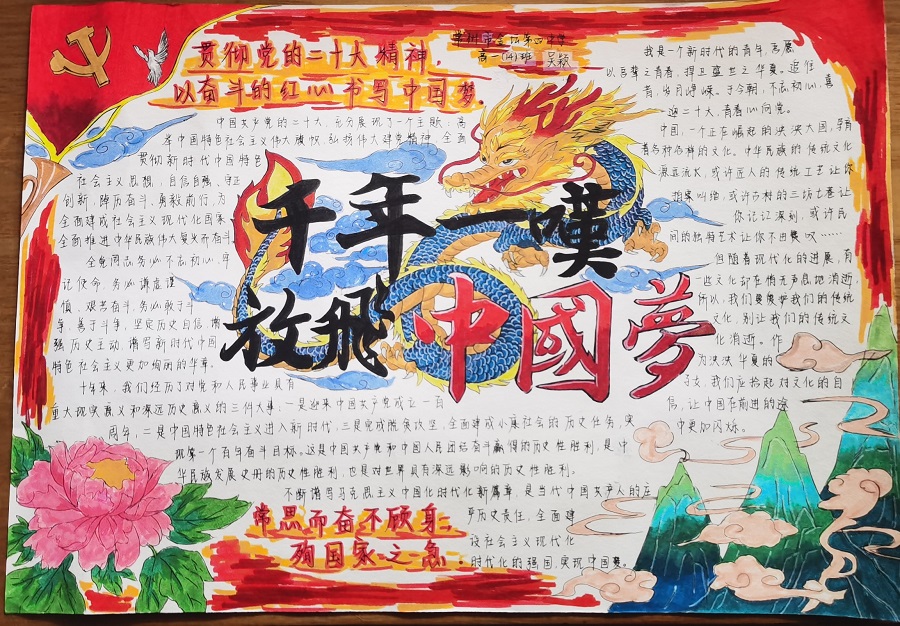 贯彻党的二十大精神，
以奋斗的红心书写中国梦。
高一(14)班 吴颖
中国共产党的二十大，充分展现了一个主题：高
举中国特色社会主义伟大旗帜，弘扬伟大建党精神，全面
贯彻新时代中国特色
社会主义思想，自信自强、守正
创新，踔厉奋斗、勇毅前行，为
全面建成社会主义现代化国家、
全面推进中华民族伟大复兴而奋斗。
全党同志务必不忘初心、牢
记使命，务必谦虚谨
慎、艰苦奋斗，务必敢于斗
争、善于斗争，坚定历史自信，增
强历史主动，谱写新时代中国
特色社会主义更加绚丽的华章。
十年来，我们经历了对党和人民事业具有
重大现实意义和深远历史意义的三件大事：一是迎来中国共产党成立一百
周年，二是中国特色社会主义进入新时代，三是完成脱贫攻坚、全面建成小康社会的历史任务，实
现第一个百年奋斗目标。这是中国共产党和中国人民团结奋斗赢得的历史性胜利，是中
华民族发展史册的历史性胜利，也是对世界具有深远影响的历史性胜利。
不断谱写马克思主义中国化时代化新篇章，是当代中国共产人的庄
严历史责任，全面建
设社会主义现代化
时代化的强国，实现中国梦。
千年一嘆
放飛中國夢
常思而奋不顾身，
殉国家之急。
我是一个新时代的青年，当愿
以吾辈之青春，捍卫盛世之华夏。追往
昔，岁月峥嵘。于今朝，不忘初心，喜
迎二十大，青春心向党。
中国，一个正在崛起的泱泱大国，孕育
着各种各样的文化。中华民族的传统文化
源远流长，或许匠人的传统工艺让你
拍案叫绝，或许古朴的三坊七巷让
你记记深刻，或许民
间的独特艺术让你不由赞叹……
但随着现代化的进展，有
一些文化却在悄无声息地消逝
所以，我们要爱护我们的传统
文化，别让我们的传统文
化消逝。作
为泱泱华夏的
子女，我们应拾起对文化的自
信，让中国在前进的途
中更加闪烁。